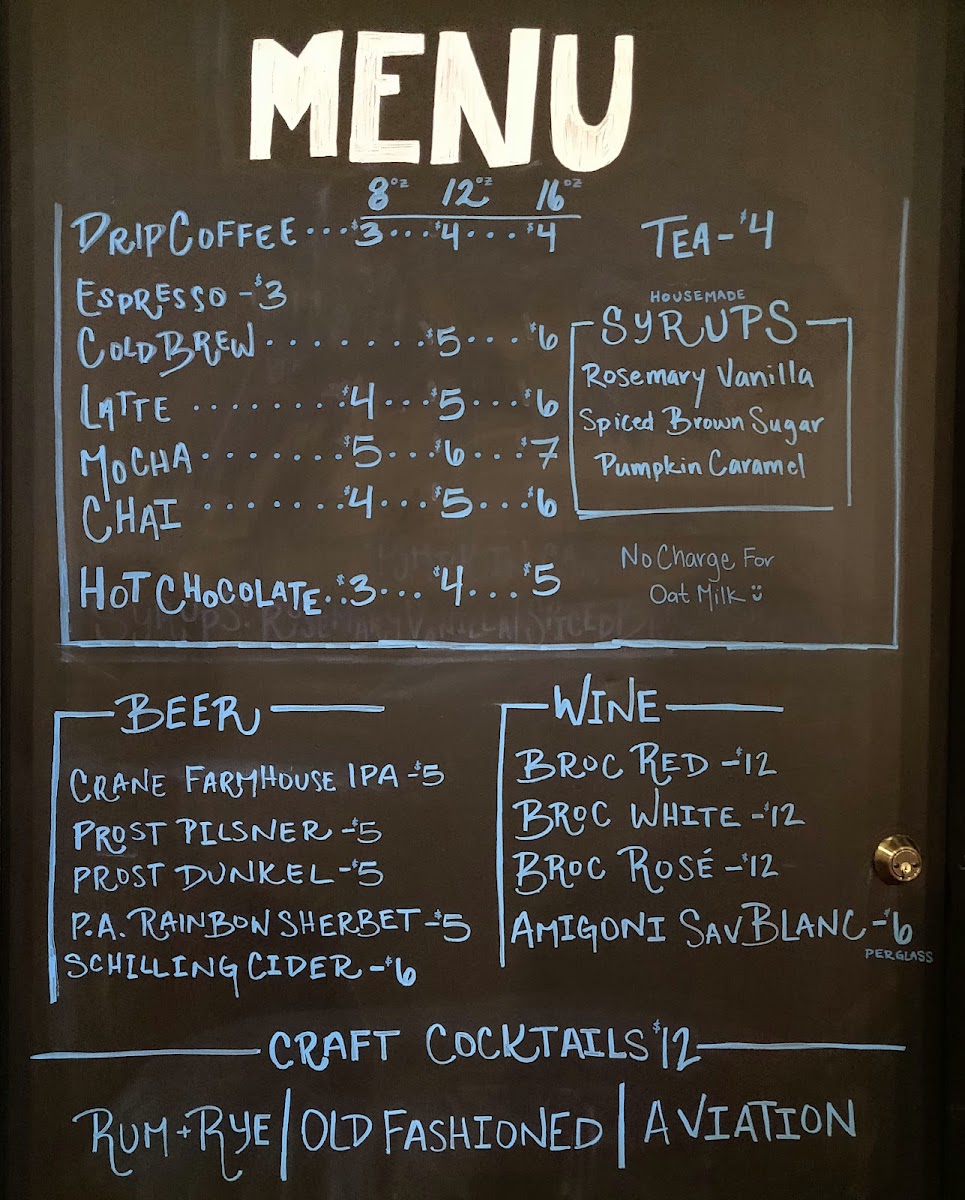 MENU
8oz 12oz 16oz
DRIP COFFEE ... $3 ... $4 .... $4
ESPRESSO - $3
COLD BREW ........ $5 .... $6
LATTE ........ $4 ... $5 ... $6
MOCHA ........ $5 ... $6 ... $7
CHAI ........ $4 ... $5 ... $6
HOT CHOCOLATE .. $3 ... $4 .... $5
TEA - $4
HOUSEMADE
SYRUPS
Rosemary Vanilla
Spiced Brown Sugar
Pumpkin Caramel
No Charge For
Oat Milk
BEER
CRANE FARMHOUSE IPA - $5
PROST PILSNER - $5
PROST DUNKEL - $5
P.A. RAINBOW SHERBET - $5
SCHILLING CIDER - $6
WINE
BROC RED - $12
BROC WHITE - $12
BROC ROSÉ - $12
AMIGONI SAV BLANC - $6
PER GLASS
CRAFT COCKTAILS $12
RUM + RYE | OLD FASHIONED | AVIATION